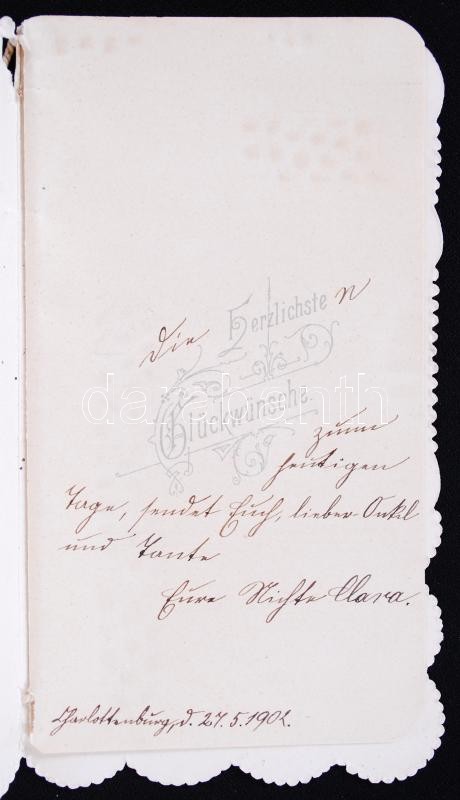 Die Herzlichste n
Glückwünsche
zum
heutigen
Tage, sendet Euch, lieber Onkel
und Tante
Eure Nichte Clara.
Charlottenburg, d. 27.5.1902.
darabanth